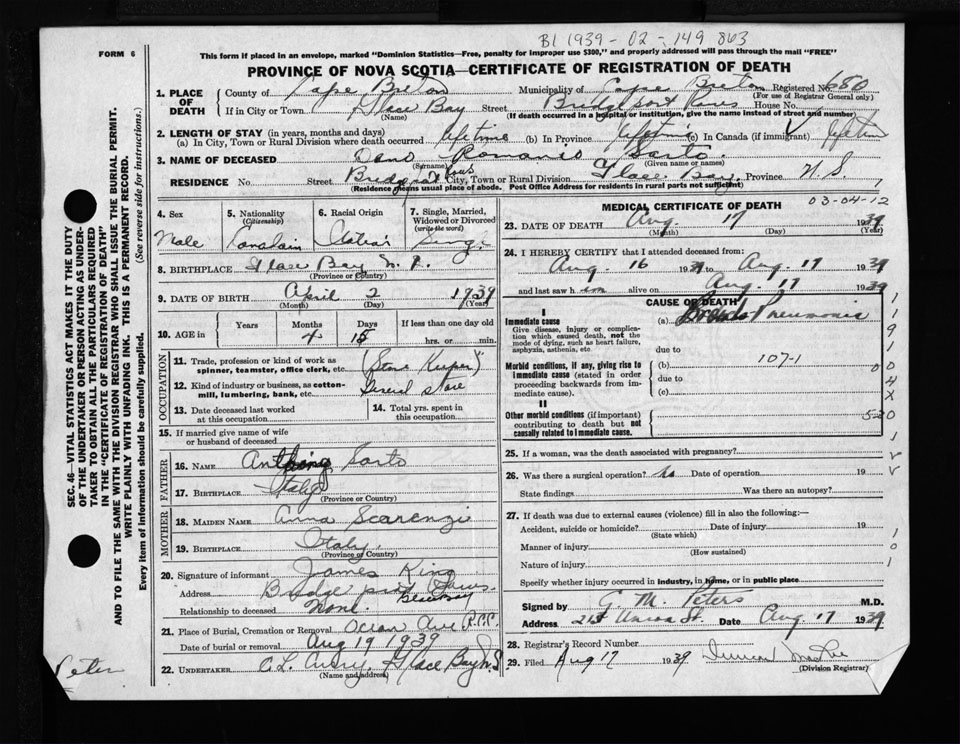 B1 1939-02-149 863
FORM 6
This form if placed in an envelope, marked "Dominion Statistics—Free, penalty for improper use $300," and properly addressed will pass through the mail "FREE"
PROVINCE OF NOVA SCOTIA—CERTIFICATE OF REGISTRATION OF DEATH
1. PLACE OF DEATH
County of Cape Breton Municipality of Cape Breton Registered No. 680
(For use of Registrar General only)
If in City or Town Glace Bay Street Bridgeport House No.
(Name) (If death occurred in a hospital or institution, give the name instead of street and number)
2. LENGTH OF STAY (in years, months and days)
(a) In City, Town or Rural Division where death occurred lifetime (b) In Province lifetime (c) In Canada (if immigrant) lifetime
3. NAME OF DECEASED Romanio Sarto
(Surname) (Given name or names)
RESIDENCE No. Street City, Town or Rural Division Glace Bay Province N.S.
(Residence means usual place of abode. Post Office Address for residents in rural parts not sufficient)
4. Sex Male
5. Nationality (Citizenship) Canadian
6. Racial Origin Italian
7. Single, Married, Widowed or Divorced (write the word) Single
8. BIRTHPLACE Glace Bay N.S.
(Province or Country)
9. DATE OF BIRTH April 2 1939
(Month) (Day) (Year)
10. AGE in Years Months Days If less than one day
4 15 hrs. or min.
OCCUPATION
11. Trade, profession or kind of work as spinner, teamster, office clerk, etc. (Store Keeper)
12. Kind of industry or business, as cotton-mill, lumbering, bank, etc. General Store
13. Date deceased last worked at this occupation
14. Total yrs. spent in this occupation
15. If married give name of wife or husband of deceased
FATHER
16. NAME Anthony Sarto
17. BIRTHPLACE Italy
(Province or Country)
MOTHER
18. MAIDEN NAME Anna Scarenzi
19. BIRTHPLACE Italy
(Province or Country)
20. Signature of informant James King
Address Bridgeport Glace Bay
Relationship to deceased None.
21. Place of Burial, Cremation or Removal Ocean Ave R.C.C.
Date of burial or removal Aug 19 1939
22. UNDERTAKER Glace Bay N.S
(Name and address)
MEDICAL CERTIFICATE OF DEATH
03-04-12
23. DATE OF DEATH Aug. 17 1939
(Month) (Day) (Year)
24. I HEREBY CERTIFY that I attended deceased from:
Aug. 16 1939 to Aug. 17 1939
and last saw him alive on Aug. 17 1939
CAUSE OF DEATH
I
Immediate cause (a) Broncho Pneumonia
Give disease, injury or complication which caused death, not the mode of dying, such as heart failure, asphyxia, asthenia, etc
due to
Morbid conditions, if any, giving rise to immediate cause (stated in order proceeding backwards from immediate cause).
(b) 107-1
due to
(c)
II
Other morbid conditions (if important) contributing to death but not causally related to immediate cause.
25. If a woman, was the death associated with pregnancy?
26. Was there a surgical operation? No Date of operation 19
State findings Was there an autopsy?
27. If death was due to external causes (violence) fill in also the following:—
Accident, suicide or homicide? Date of injury 19
(State which)
Manner of injury
(How sustained)
Nature of injury
Specify whether injury occurred in industry, in home, or in public place
Signed by G. M. Peters M.D.
Address 215 Union St. Date Aug 17 1939
28. Registrar's Record Number
29. Filed Aug 17 1939
(Division Registrar)
SEC. 46—VITAL STATISTICS ACT MAKES IT THE DUTY OF THE UNDERTAKER OR PERSON ACTING AS UNDERTAKER TO OBTAIN ALL THE PARTICULARS REQUIRED IN THE "CERTIFICATE OF REGISTRATION OF DEATH" AND TO FILE THE SAME WITH THE DIVISION REGISTRAR WHO SHALL ISSUE THE BURIAL PERMIT.
WRITE PLAINLY WITH UNFADING INK. THIS IS A PERMANENT RECORD.
Every item of information should be carefully supplied. (See reverse side for instructions.)
Peter